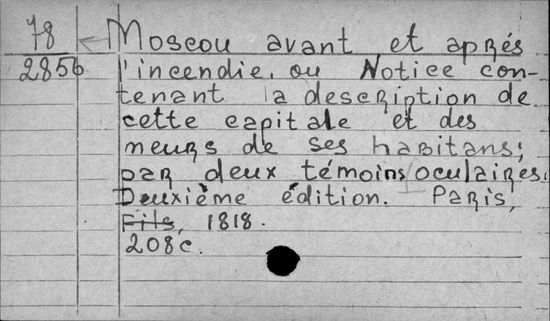 78 Moscou avant et après
2856 l'incendie, ou Notice con-
tenant la description de
cette capitale et des
meurs de ses habitans;
par deux témoins oculaires.
Deuxième édition. Paris,
Fils, 1818.
208 c.